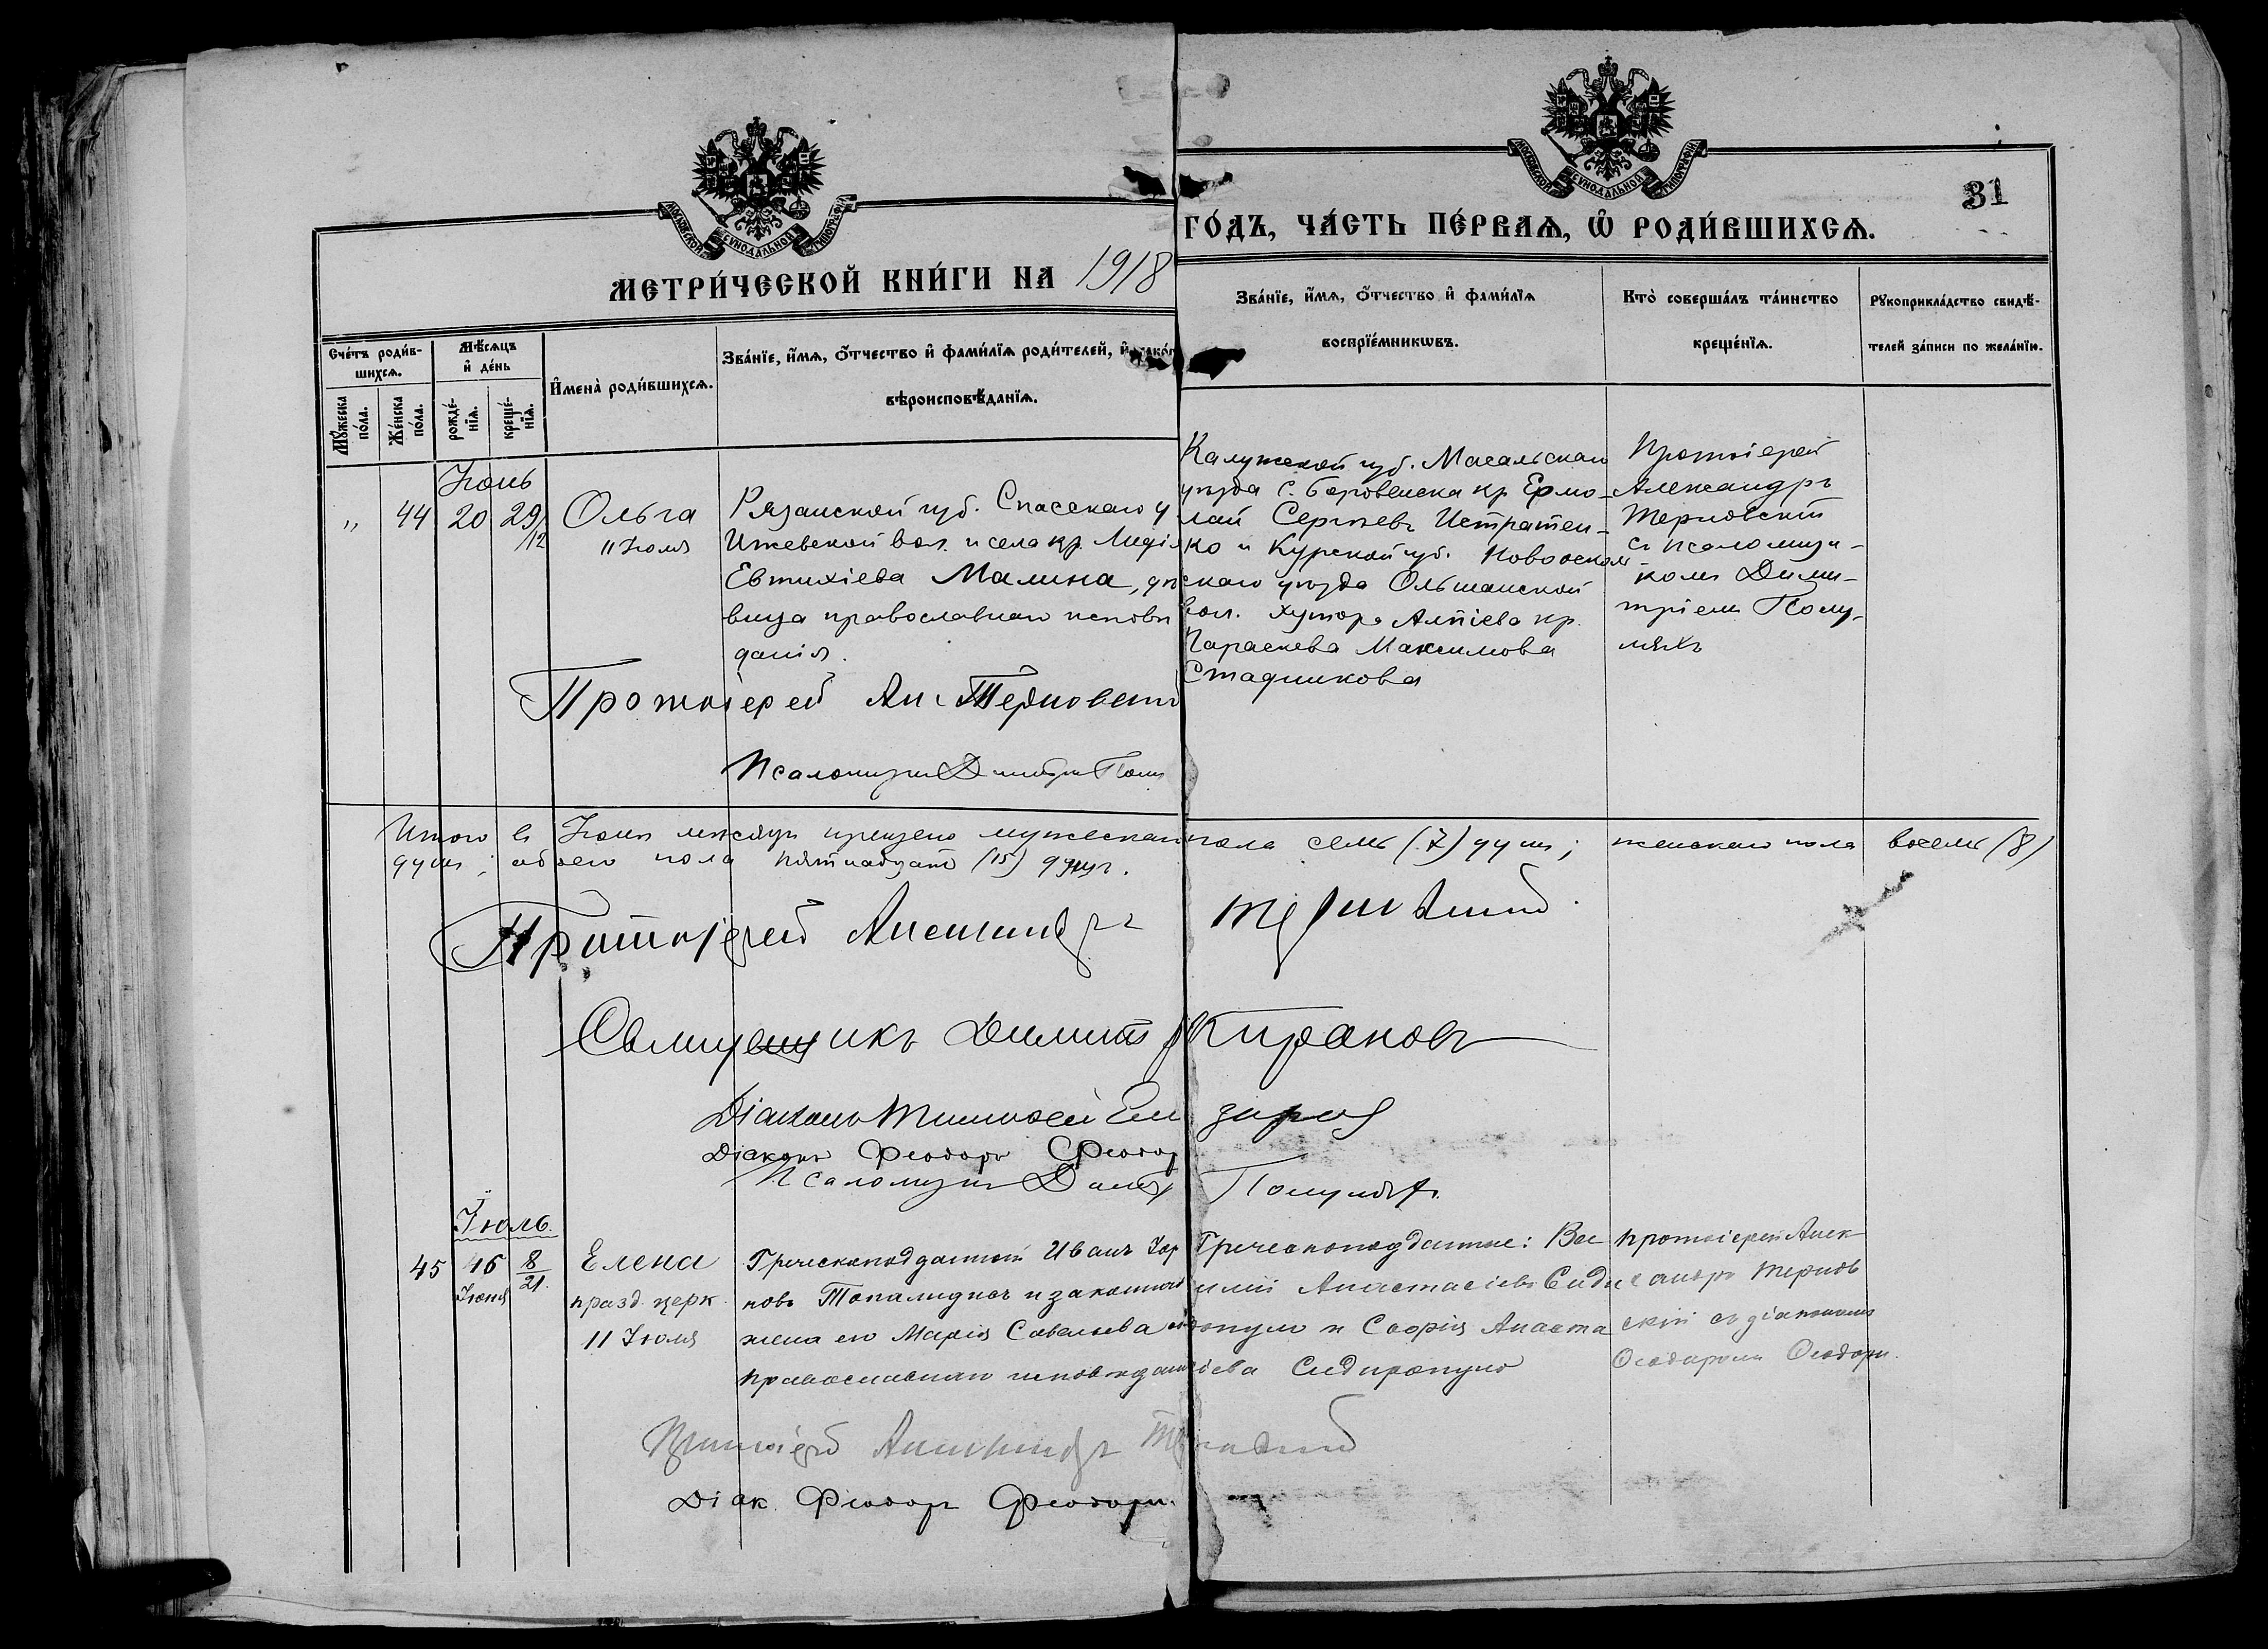 МОСКОВСКОЙ СУНОДАЛЬНОЙ ТИПОГРАФІИ
МОСКОВСКОЙ СУНОДАЛЬНОЙ ТИПОГРАФІИ
31
МЕТРИ́ЧЕСКОЙ КНИ́ГИ НА 1918 ГО́ДЪ, ЧА́СТЬ ПЕ́РВАѦ, Ѿ РОДИ́ВШИХСѦ.
Сче́тъ роди́в-
шихсѧ.
Мꙋ́жеска по́ла.
Же́нска по́ла.
Мѣ́сѧцъ и҆ де́нь
рожде́-
нїѧ.
креще́-
нїѧ.
И҆мена̀ роди́вшихсѧ.
Зва́нїе, и҆́мѧ, ѻ҆́тчество и҆ фами́лїѧ роди́телей, и҆
вѣроисповѣ́данїѧ.
Зва́нїе, и҆́мѧ, ѻ҆́тчество и҆ фами́лїѧ
воспрїе́мникѡвъ.
Кто̀ соверша́лъ та́инство
креще́нїѧ.
Рꙋкоприкла́дство свидѣ́-
телей за́писи по жела́нїю.
Іюнь
" 44 20 29/12
Ольга
11 Іюля
Рязанской губ. Спасскаго у
Ижевской вол. и села кр. Лидія
Евтихіева Малина, дѣ
вица православнаго исповѣ
данія.
Калужской губ. Масальскаго
уѣзда с. Боровенска кр. Ермо-
лай Сергѣевъ Истратен-
ко и Курской губ. Новооскол-
скаго уѣзда Ольшанской
вол. хутора Алпіева кр.
Параскева Максимова
Стадникова
Протоіерей
Александръ
Терновскій
съ псаломщи-
комъ Дими-
тріемъ Полу-
ляхъ
Протоіерей Ал. Терновскій
Псаломщикъ Димитрій Полу
Итого въ Іюнѣ мѣсяцѣ крещено мужескаго пола семь (7) душъ; женскаго пола восемь (8)
душъ; обоего пола пятнадцать (15) душъ.
Протоіерей Александръ Терновскій
Священникъ Димит Кирановъ
Діаконъ Тимофей
Діаконъ Феодоръ Феодор
Псаломщикъ Димит Полулях
Іюль.
45 16 8/21
Іюня
Елена
празд. церк.
11 Іюля
Греческоподданный Иванъ Хар
новъ Топалидисъ и законная
жена его Марія Савельева
православнаго исповѣдан
Греческоподданные: Вас
илій Анастасіевъ Сиди
ропуло и Софія Анаста
сіева Сидиропуло
протоіерей Алек
сандръ Тернов
скій съ діакономъ
Ѳеодоромъ Ѳеодори.
Протоіерей Александръ Терновскій
Діак. Феодоръ Феодори.